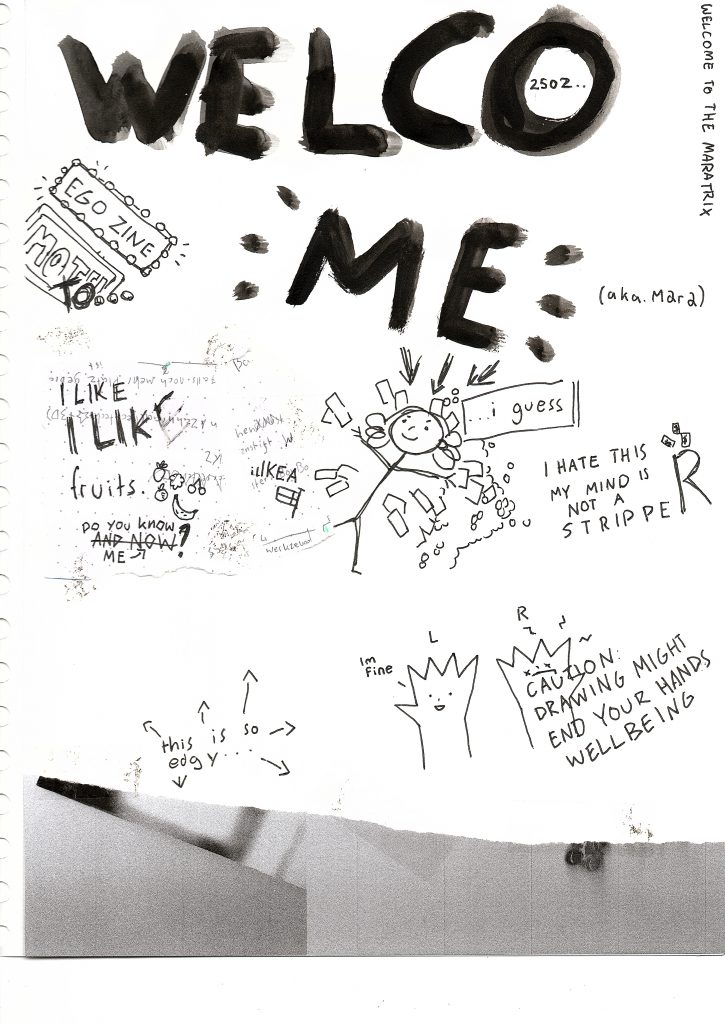 WELCO
2502..
WELCOME TO THE MARATRIX
EGO ZINE
TO...
ME
(aka. Mara)
I LIKE
I LIK
fruits.
DO YOU KNOW
AND NOW?
ME
ilIKEA
...i guess
I HATE THIS
MY MIND IS
NOT A
STRIPPER
L
R
Im
Fine
CAUTION:
DRAWING MIGHT
END YOUR HANDS
WELLBEING
this is so
edgy...